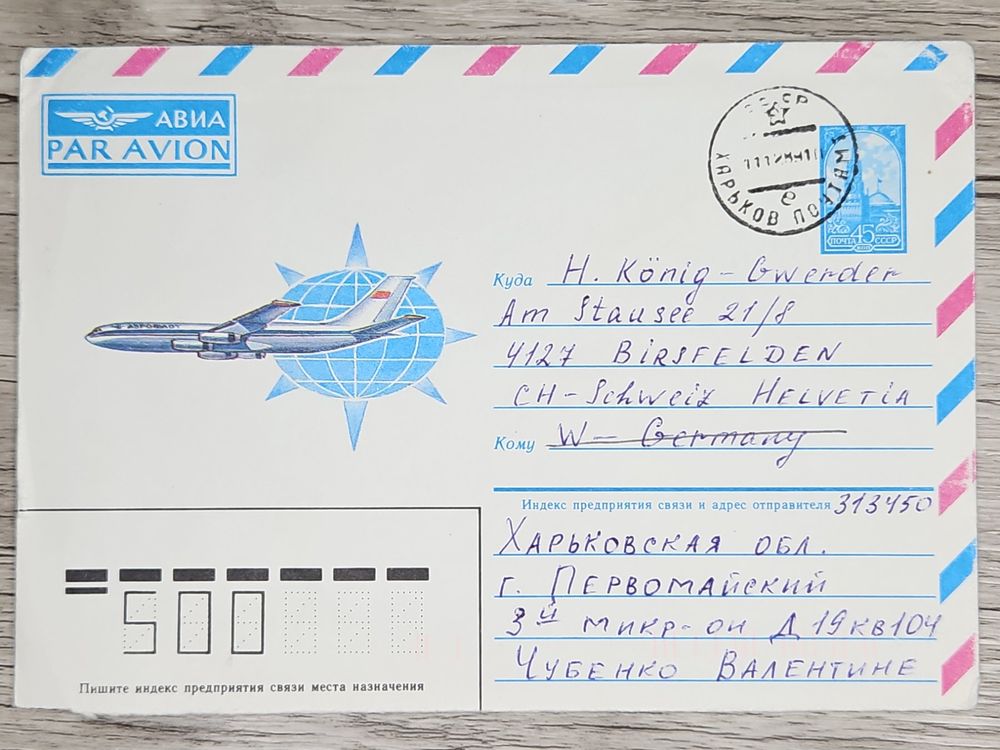 АВИА
PAR AVION
СССР
ХАРЬКОВ ПОЧТАМТ
е
ПОЧТА 45 СССР
КОП
АЭРОФЛОТ
Куда H. König-Gwerder
Am Stausee 21/8
4127 BIRSFELDEN
CH-Schweiz HELVETIA
Кому W-Germany
Индекс предприятия связи и адрес отправителя 313450
ХАРЬКОВСКАЯ ОБЛ.
г. ПЕРВОМАЙСКИЙ
3й микр-он Д19кв104
ЧУБЕНКО ВАЛЕНТИНЕ
500
Пишите индекс предприятия связи места назначения